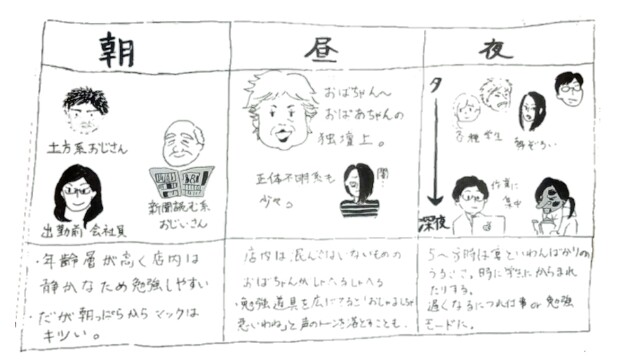 朝
土方系おじさん
新聞読む系
おじいさん
出勤前会社員
・年齢層が高く店内は
静かなため勉強しやすい
・だが朝っぱらからマックは
キツい。
昼
おばちゃん〜
おばあちゃんの
独壇上。
正体不明系も
少々。
闇…
店内は混んではいないものの
おばちゃんがしゃべるしゃべる
・勉強道具を広げてると「おしゃましちゃ
悪いわね」と声のトーンを落とすことも。
夜
夕
各種学生
勢ぞろい
作業に
集中
深夜
5〜 時は宴といわんばかりの
うるさこ。時に学生にからまれ
たりする。
遅くなるにつれ仕事or勉強
モードに。